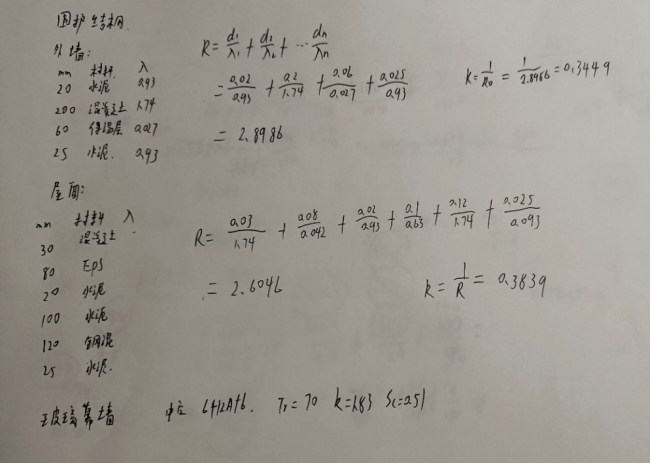 围护结构
外墙:
mm 材料 λ
20 水泥 0.93
200 混凝土 1.74
60 保温层 0.027
25 水泥 0.93
R = d₁/λ₁ + d₂/λ₂ + … dn/λn
= 0.02/0.93 + 0.2/1.74 + 0.06/0.027 + 0.025/0.93
= 2.8986
K = 1/R₀ = 1/2.8986 = 0.3449
屋面:
mm 材料 λ
30 混凝土
80 EPS
20 水泥
100 水泥
120 钢混
25 水泥.
R = 0.03/1.74 + 0.08/0.042 + 0.02/0.93 + 0.1/0.63 + 0.12/1.74 + 0.025/0.093
= 2.6046
k = 1/R = 0.3839
玻璃幕墙 中空 6+12A+6. Tr=70 k=1.83 Sc=0.51